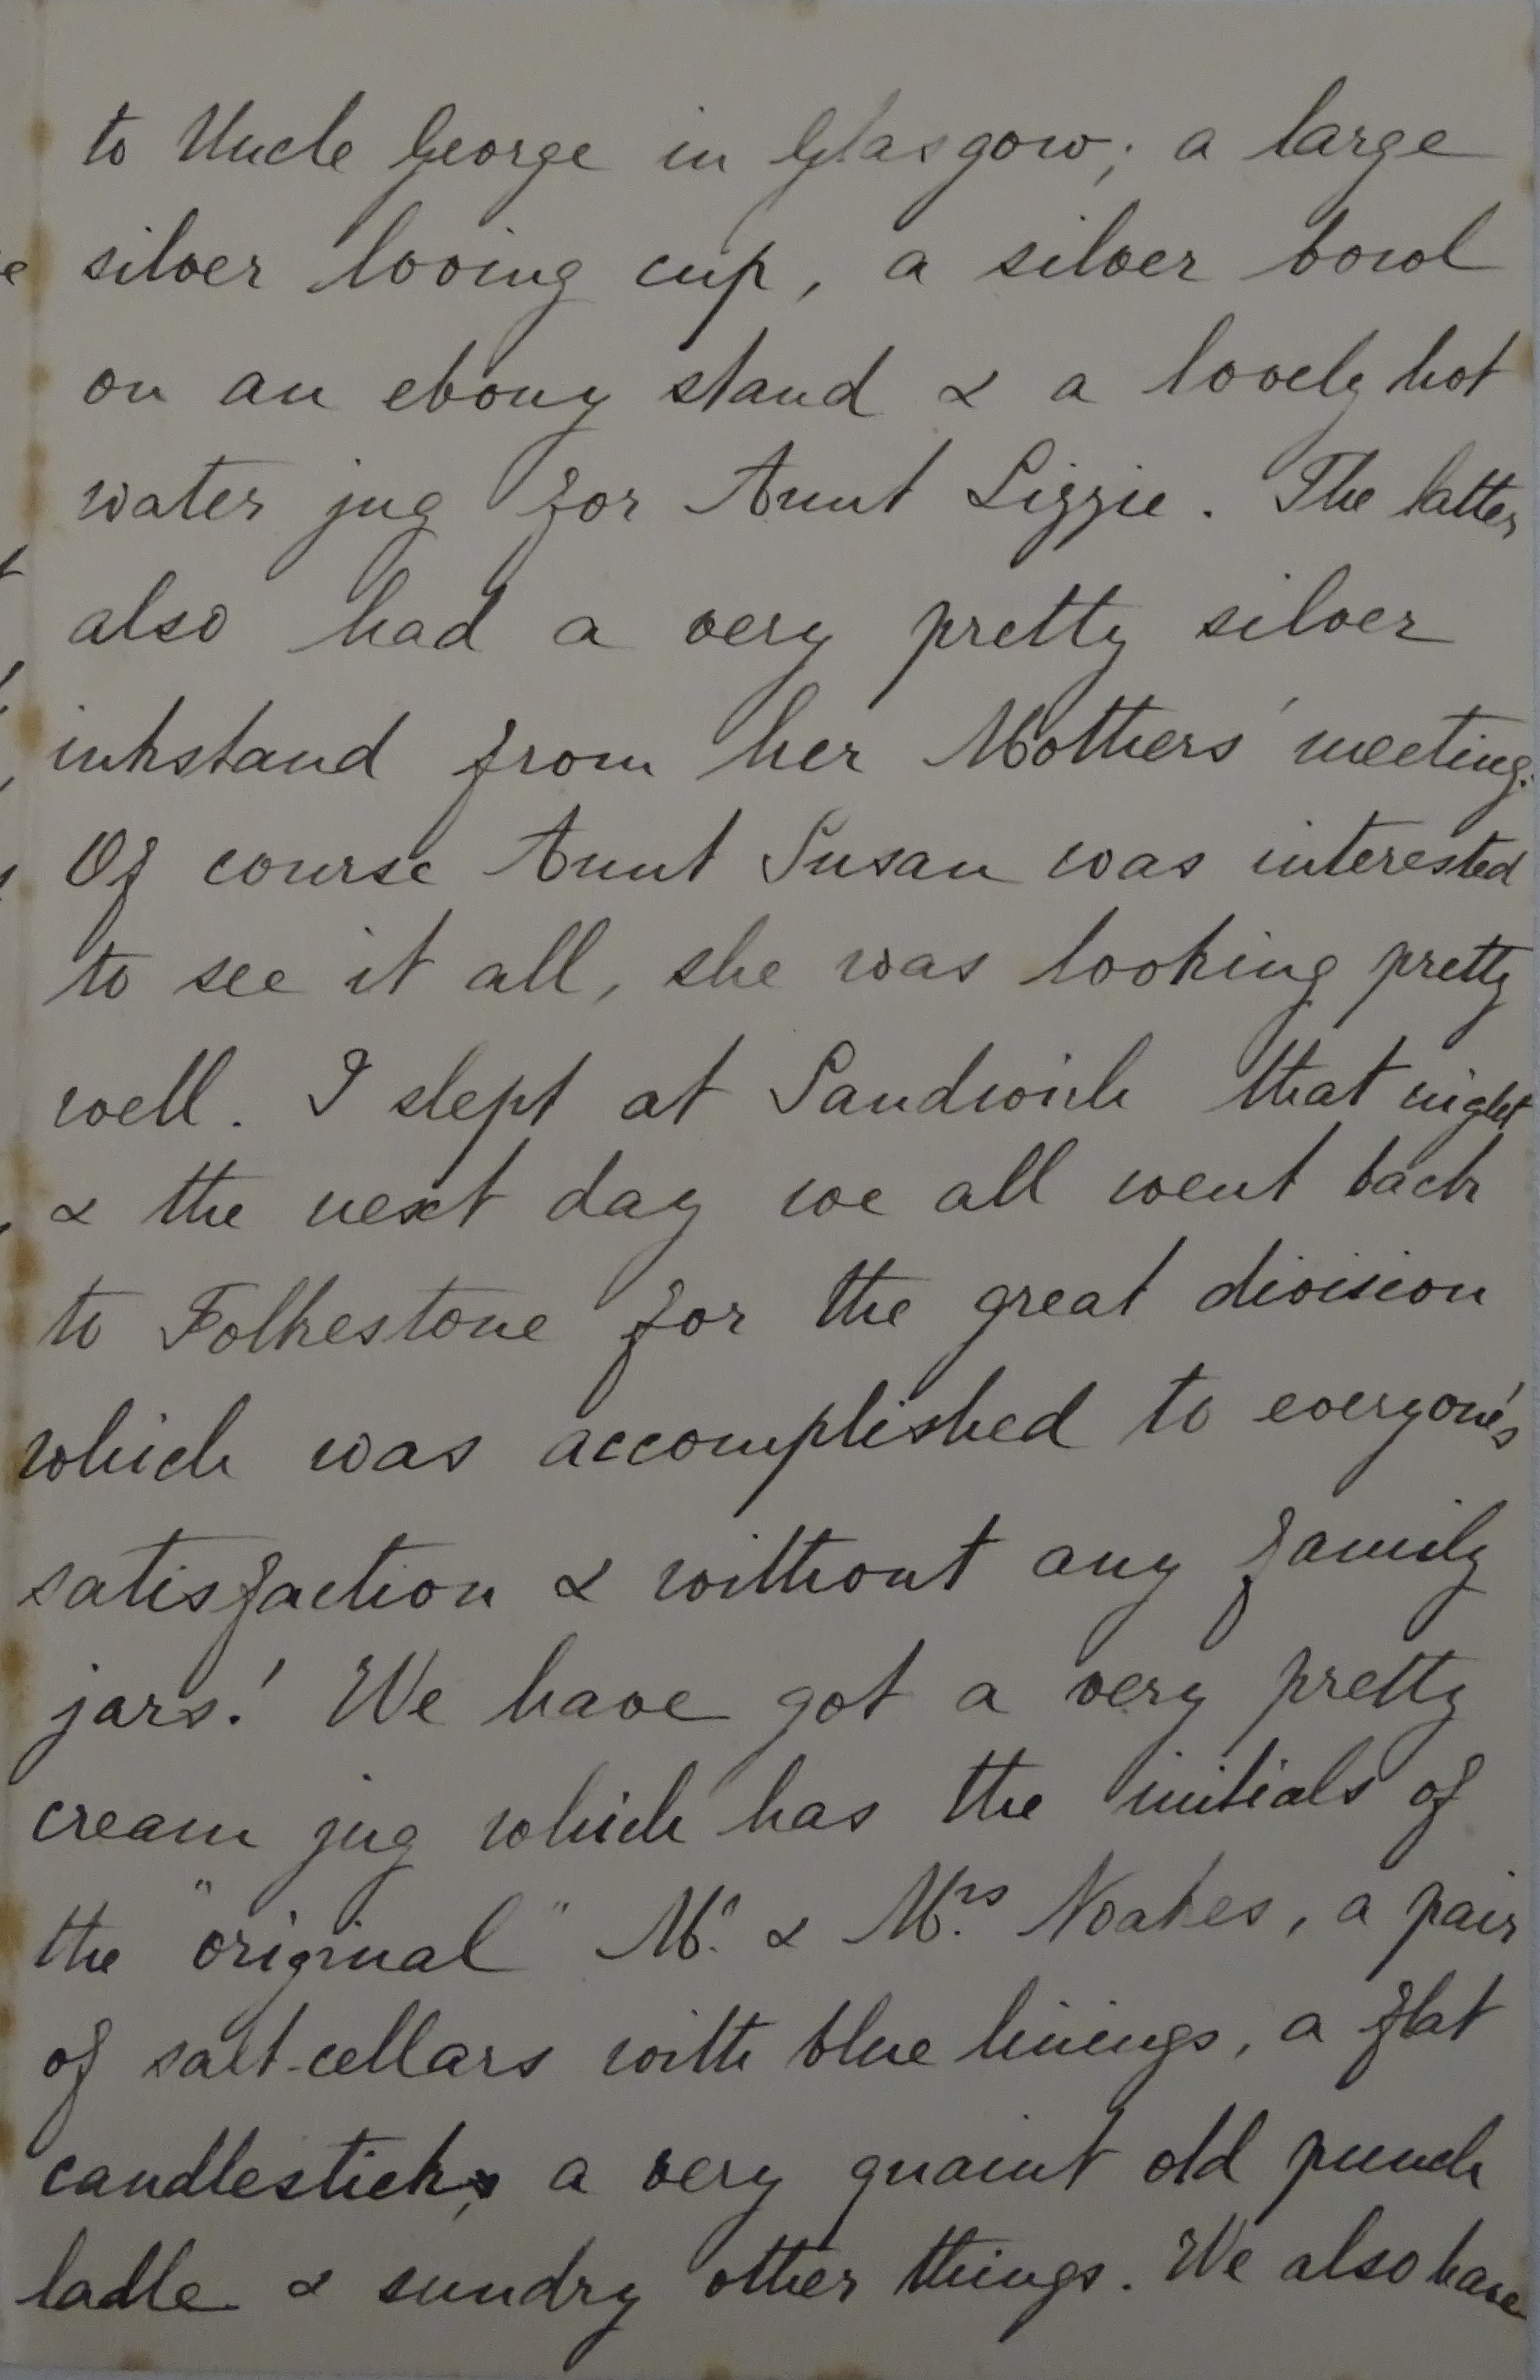 to Uncle George in Glasgow; a large
silver loving cup, a silver bowl
on an ebony stand & a lovely hot
water jug for Aunt Lizzie. The latter
also had a very pretty silver
inkstand from her Mothers' meeting.
Of course Aunt Susan was interested
to see it all, she was looking pretty
well. I slept at Sandwich that night
& the next day we all went back
to Folkestone for the great division
which was accomplished to everyone's
satisfaction & without any family
jars! We have got a very pretty
cream jug which has the initials of
the "original" Mr. & Mrs. Noakes, a pair
of salt-cellars with blue linings, a flat
candlestick, a very quaint old punch
ladle & sundry other things. We also have